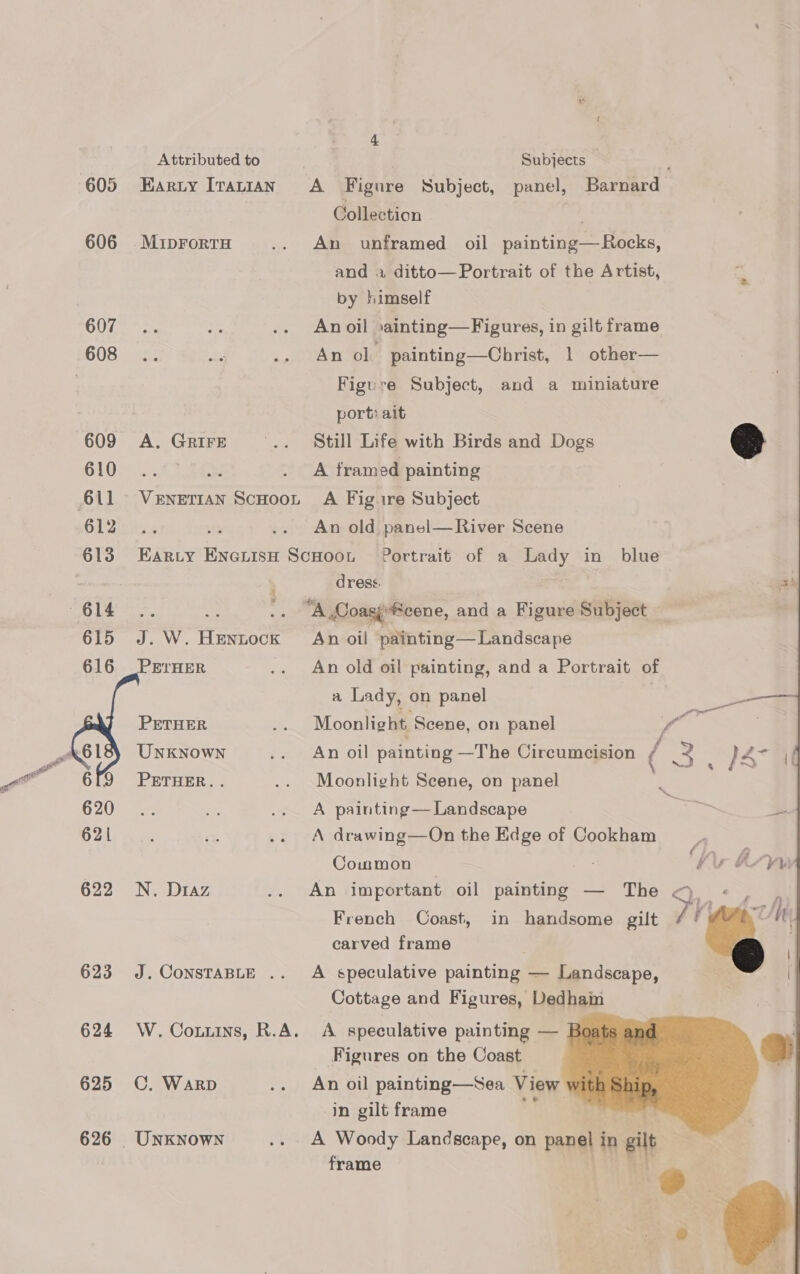 4
Attributed to Subjects
605 EARLY ITALIAN A Figure Subject, panel, Barnard
Collection
606 MIDFORTH .. An unframed oil painting—Rocks,
and a ditto—Portrait of the Artist,
by himself
607 .. .. .. An oil painting—Figures, in gilt frame
608 .. .. .. An oil painting—Christ, 1 other—
Figure Subject, and a miniature
portrait
609 A. GRIFE .. Still Life with Birds and Dogs
610 .. .. . A framed painting
611 VENETIAN SCHOOL A Figure Subject
612 .. .. .. An old panel—River Scene
613 EARLY ENGLISH SCHOOL Portrait of a Lady in blue
dress
614 .. .. .. A Coast Scene, and a Figure Subject
615 J. W. HENLOCK An oil painting—Landscape
616 PETHER .. An old oil painting, and a Portrait of
a Lady, on panel
617 PETHER .. Moonlight Scene, on panel
618 UNKNOWN .. An oil painting—The Circumcision
619 PETHER.. .. Moonlight Scene, on panel
620 .. .. .. A painting—Landscape
621 . .. .. A drawing—On the Edge of Cookham
Common
622 N. DIAZ .. An important oil painting — The
French Coast, in handsome gilt
carved frame
623 J. CONSTABLE .. A speculative painting — Landscape,
Cottage and Figures, Dedham
624 W. COLLINS, R.A. A speculative painting — Boats and
Figures on the Coast
625 C. WARD .. An oil painting—Sea View with Ship,
in gilt frame
626 UNKNOWN .. A Woody Landscape, on panel in gilt
frame